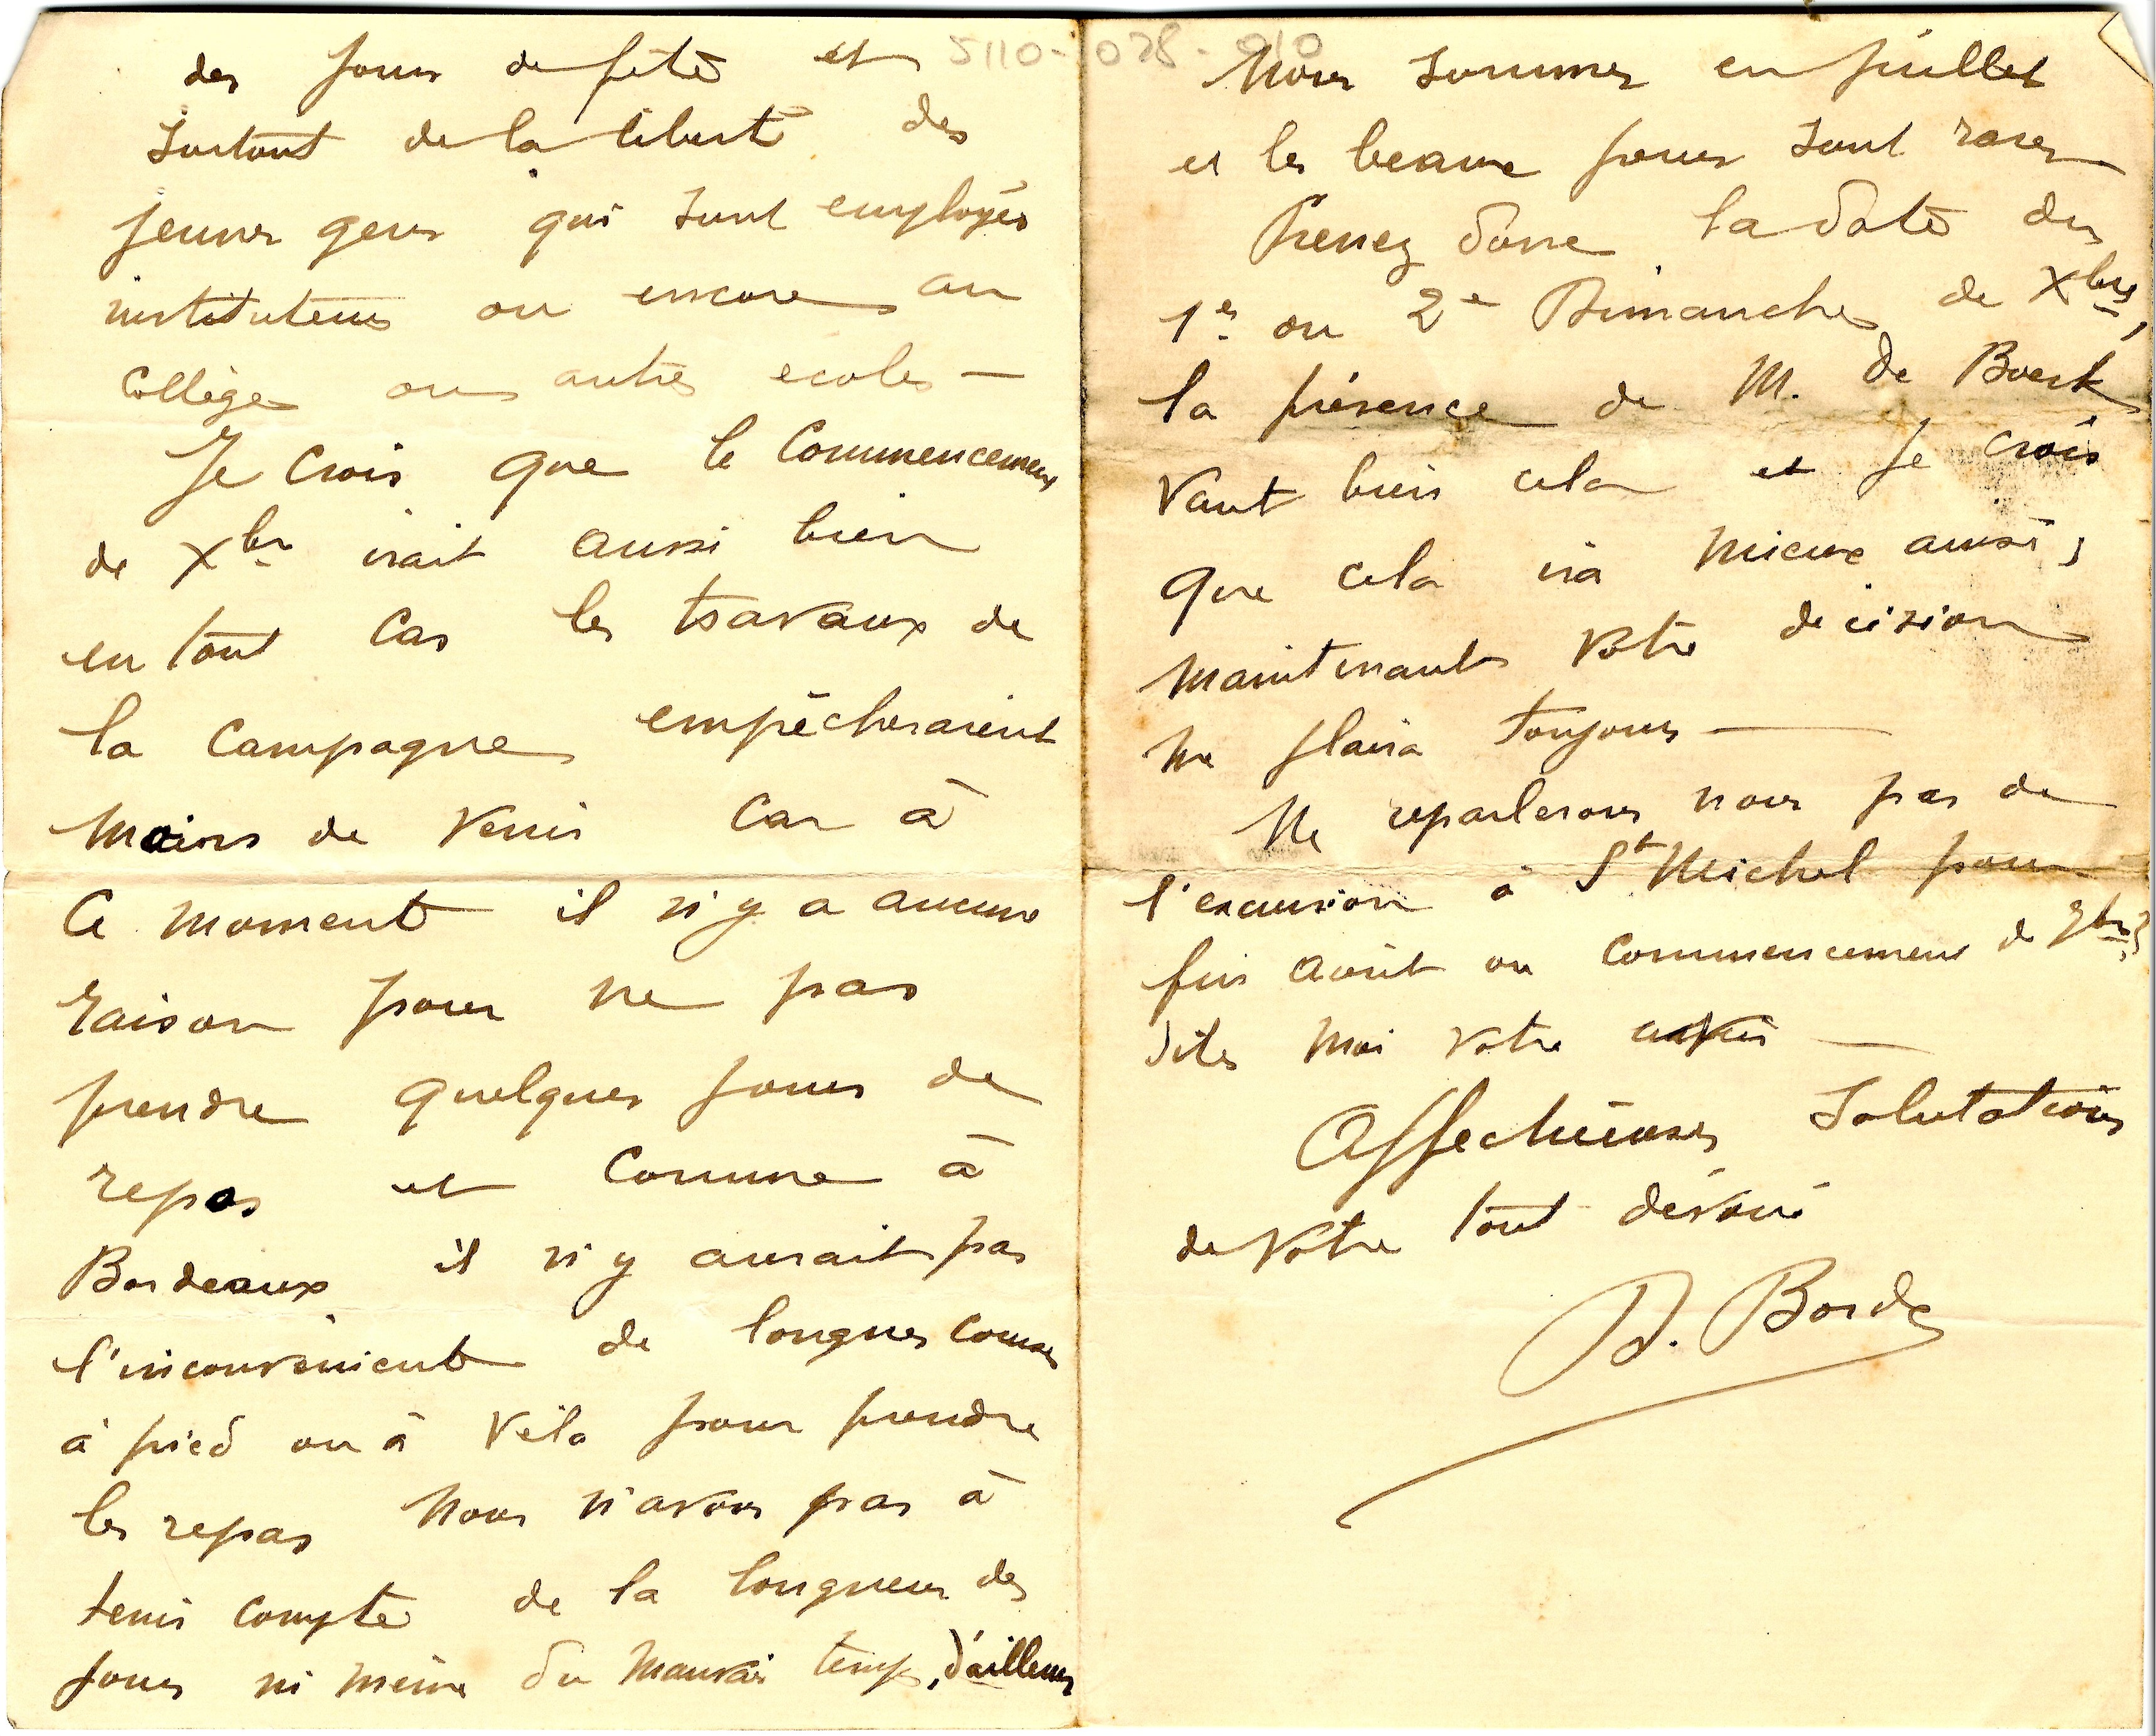 des jours de fête et
surtout de la liberté des
jeunes gens qui sont employés
instituteurs ou encore au
Collège ou autres ecoles —
Je Crois que le Commencement
de Xbre irait aussi bien
en tout Cas les travaux de
la Campagne empêcheraient
moins de Venir Car à
Ce moment il n'y a aucune
raison pour ne pas
prendre quelques jours de
repos et Comme à
Bordeaux il n'y aurait pas
l'inconvénient de longues courses
à pied ou à Vélo pour prendre
les repas Nous n'avons pas à
tenir Compte de la longueur des
jours ni même du mauvais temps, d'ailleurs
5110-028-010
Nous sommes en juillet
et les beaux jours sont rares
Prenez donc la date du
1er ou 2e Dimanche de Xbre,
la présence de M. de Boeck
Vaut bien cela et je crois
que cela ira mieux ainsi ;
maintenant Votre decision
me plaira toujours —
Ne reparlerons nous pas de
l'excursion à St Michel pour
fin août ou Commencement de 7bre ?
dites moi Votre avis —
Affectueuses Salutations
de Votre tout dévoué
D. Borde